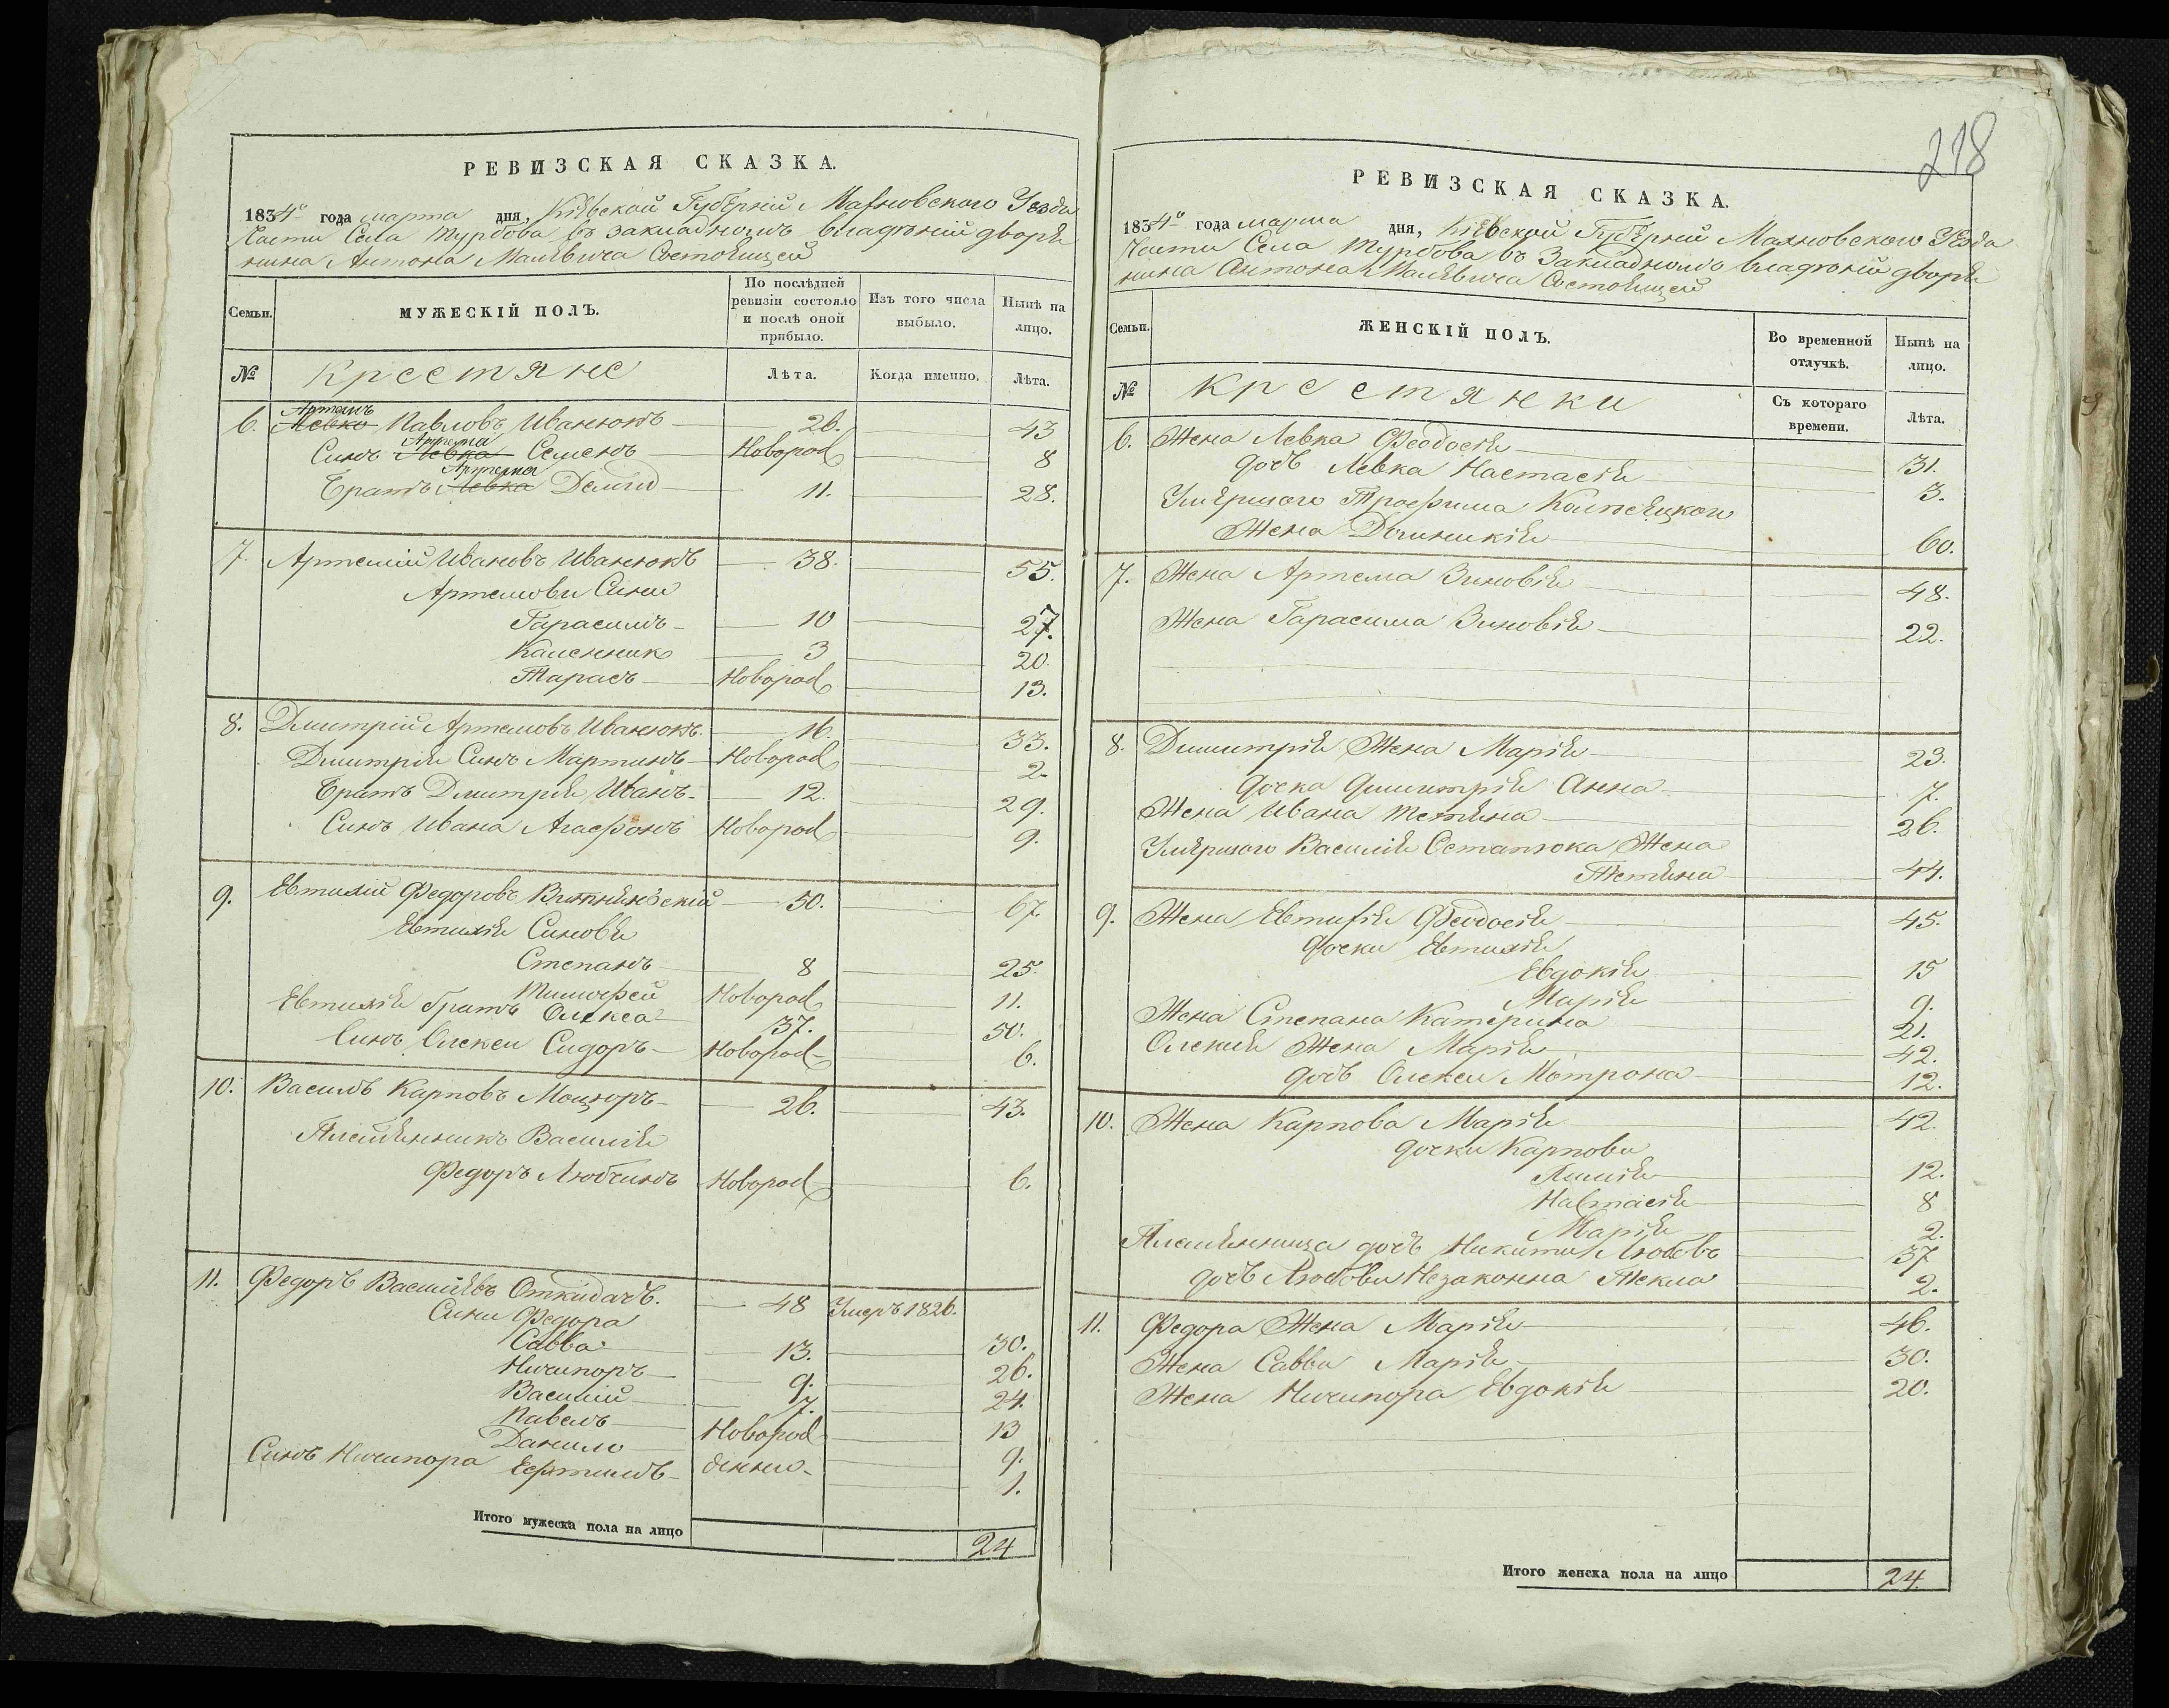 РЕВИЗСКАЯ СКАЗКА.
1834го года марта дня, Кіевской Губерніи Махновского Уезда
Части Села Турбова въ закладномъ владѣніи дворя
нина Антона Малевича Состоящей
Семьи.
МУЖЕСКІЙ ПОЛЪ.
По послѣдней ревизіи состояло и послѣ оной прибыло.
Изъ того числа выбыло.
Нынѣ на лицо.
№
Крестяне
Лѣта.
Когда именно.
Лѣта.
Артемъ
6. Левко Павловъ Иванюкъ 26. 43
Артема
Синъ Левка Семенъ Новород 8
Артема
Братъ Левка Демид 11. 28.
7. Артемій Ивановъ Иванюкъ 38. 55.
Артемови Сини
Гарасимъ 10 27.
Каленикъ 3 20.
Тарасъ Новород 13.
8. Дмитрій Артемовъ Иванюкъ. 16. 33.
Дмитрія Синъ Мартинъ Новород 2.
Братъ Дмитрія Иванъ 12. 29.
Синъ Ивана Агафонъ Новород 9.
9. Евтихій Федоровъ 50. 67.
Евтихія Синовя
Степанъ 8 25.
Тимофей Новород 11.
Евтихія братъ Олекса 37. 50.
Синъ Олекси Сидоръ Новород 6.
10. Василь Карповъ Моцюръ 26. 43.
Племянникъ Василія
Федоръ Любчинъ Новород 6.
11. Федоръ Василіевъ Откидачъ. 48 Умеръ 1826.
Сини Федора
Савва 13. 30.
Ничипоръ 9. 26.
Василій 7. 24.
Павелъ Новород 13
Данило 9.
Синъ Ничипора Ефтимъ денно 1.
Итого мужеска пола на лицо 24
218
РЕВИЗСКАЯ СКАЗКА.
1834го года марта дня, Кіевской Губерніи Махновского Уезда
Части Села Турбова въ Закладномъ владѣніи дворя
нина Антона Малевича Состоящей
Семьи.
ЖЕНСКІЙ ПОЛЪ.
Во временной отлучкѣ.
Нынѣ на лицо.
№
Крестянки
Съ котораго времени.
Лѣта.
6. Жена Левка Феодосія 31.
дочь Левка Настасія 3.
Умершого Трофима
Жена Доминикія 60.
7. Жена Артема Зиновія 48.
Жена Гарасима Зиновія 22.
8. Димитрія Жена Марія 23.
дочка димитрія Анна 7.
Жена Ивана Тетяна 26.
Умершого Василія Остапюка Жена
Тетяна 44.
9. Жена Евтихія Феодосія 45.
дочки Евтихія
Евдокія 15
Марія 9.
Жена Степана Катерина 21.
Олексія Жена Марія 42.
дочь Олекси Мотрона 12.
10. Жена Карпова Марія 42.
дочки Карпови
12.
Настасія 8
Марія 2.
Племянница дочь Никити Любовь 37
дочь Любови Незаконна Текла 2.
11. Федора Жена Марія 46.
Жена Савви Марія 30.
Жена Ничипора Евдокія 20.
Итого женска пола на лицо 24.